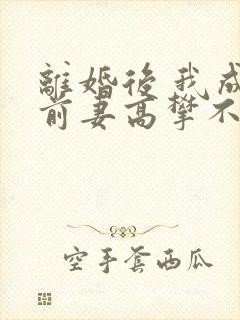 離婚後我成
前妻高攀不
空手套西瓜